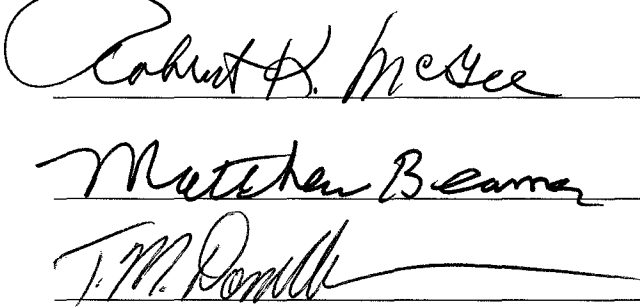 Robert K. McGee
Matthew Beamer
T. M. Donnell